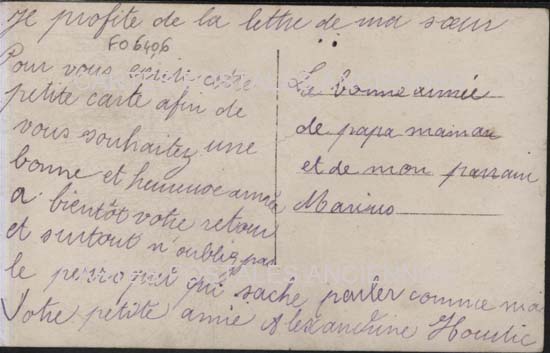 Je profite de la lettre de ma sœur
FO6406
Pour vous écrire cette
petite carte afin de
vous souhaitez une
bonne et heureuse année
a bientôt votre retour
et surtout n'oubliez pas
le perroquet qui sache parler comme moi
Votre petite amie Alexandrine
La bonne année
de papa maman
et de mon parrain
Marius